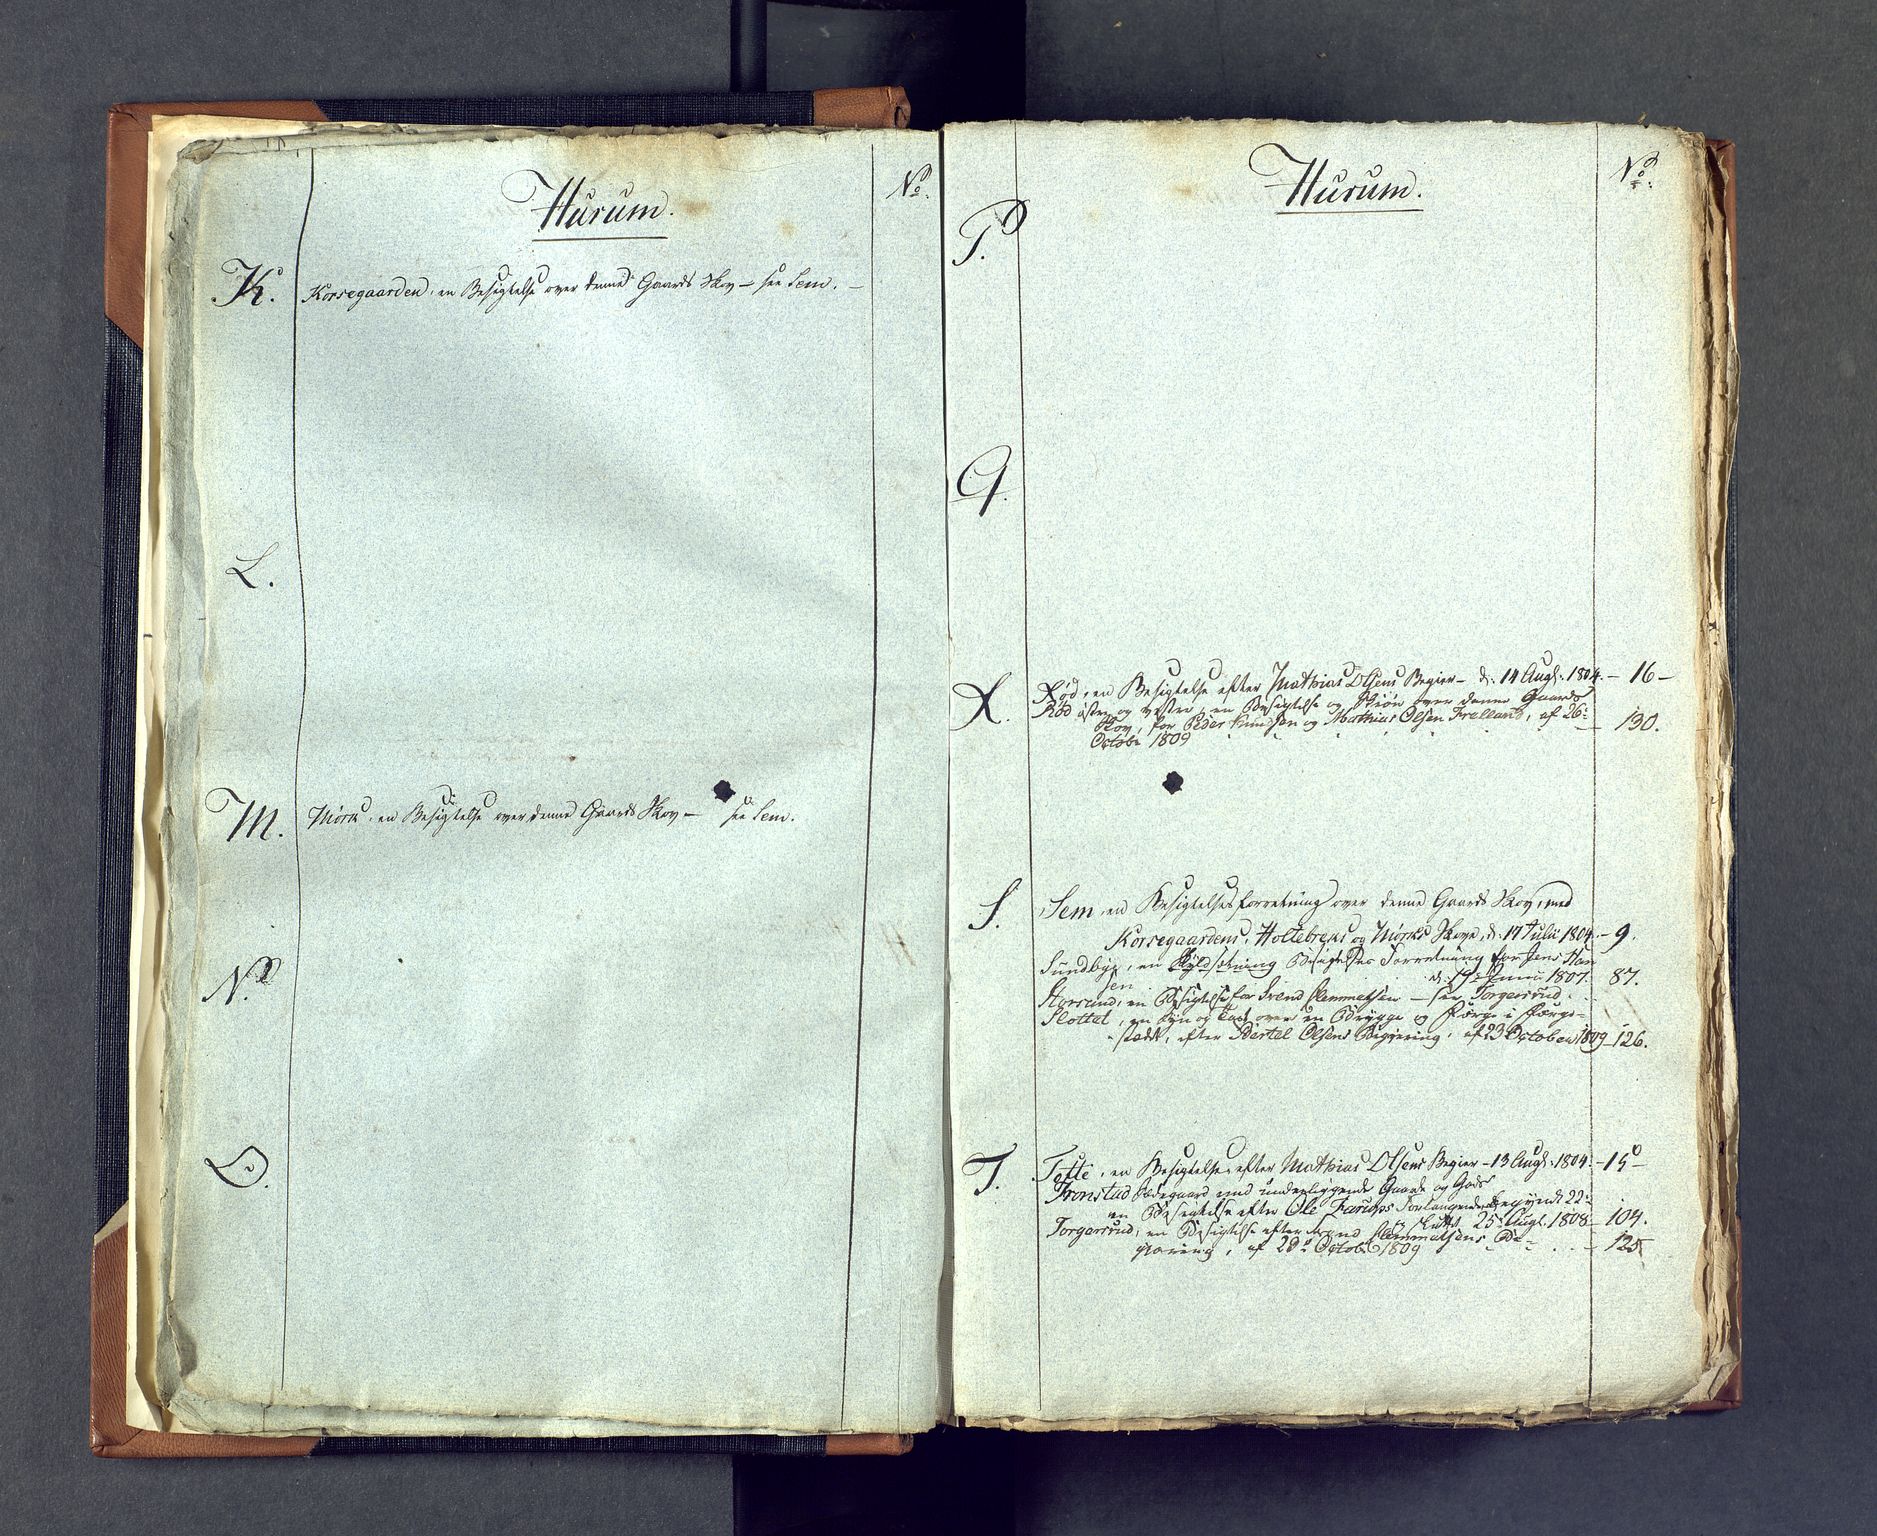 Hurum.
No.
K. Korsegaarden, en Besigtelse over denne Gaards Skov – see Sem. –
L.
M. Mörk, en Besigtelse over denne Gaards Skov – see Sem.
N.
O.
Hurum.
No.
P.
Q.
R. Röd, en Besigtelse efter Mathias Olsens Begier – d: 14 Augt: 1804. – 16 –
Röd östre og vestre, en Besigtelse og Skiön over denne Gaards
Skov, for Peder Knudsen og Mathias Olsen Frelland, af 26:
Octobr 1809 – 130.
S. Sem, en Besigtelsesforretning over denne Gaards Skov, med
Korsegaardens, Holtebreks og Mörks Skove, d: 17 Julii 1804. – 9.
Sundbye, en Skyldsetning Besigtelses Forretning for Jens Han
sen d: 19: Junii 1807. 87.
Storsund, en Besigtelse for Svend Clemmetsen – see Torgersrud.
Slottet, en Syn og Taxt over en Brygge og Færge i Færge-
-stædet, efter Bertel Olsens Begiering, af 23 October 1809 – 126.
T. Tofte, en Besigtelse efter Mathias Olsens Begier – 13 Augt: 1804. – 15 –
Tronstad Sædegaard med underliggende Gaarde og Gods
en Besigtelse efter Ole Farups Forlangende begyndt 22:
sluttet 25: Augt. 1808 – 104.
Torgersrud, en Besigtelse efter Svend Clemmetsens Be-
giæring, af 20: Octobr 1809 – 125